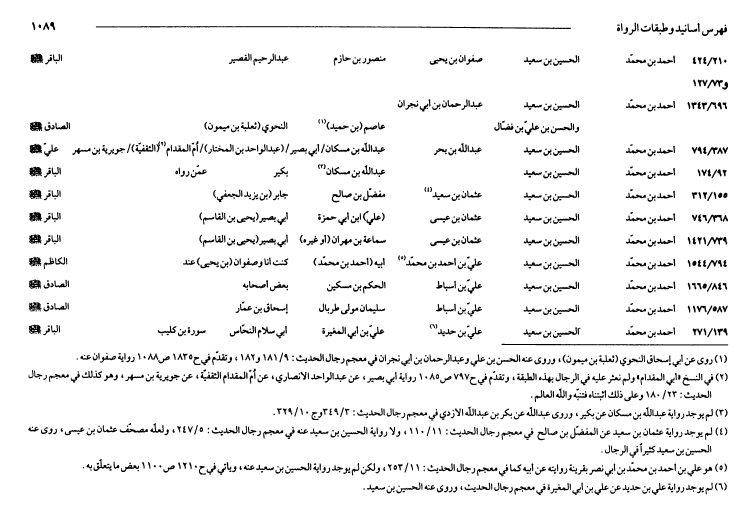 فهرس أسانيد وطبقات الرواة ١٠٨٩
٤٢٤/٢١٠ أحمد بن محمّد الحسين بن سعيد صفوان بن يحيى منصور بن حازم عبدالرحيم القصير الباقر ﷺ
و١٢٧/٧٣
١٣٤٣/٦٩٦ أحمد بن محمّد الحسين بن سعيد عبدالرحمان بن أبي نجران
والحسن بن عليّ بن فضّال عاصم (بن حميد)(١) النحوي (ثعلبة بن ميمون) الصادق ﷺ
٧٩٤/٣٨٧ أحمد بن محمّد الحسين بن سعيد عبدالله بن بحر عبدالله بن مسكان/ أبي بصير/ (عبدالواحد بن المختار)/ أمّ المقدام(٢)(الثقفيّة)/ جويرية بن مسهر عليّ ﷺ
١٧٤/٩٢ أحمد بن محمّد الحسين بن سعيد عبدالله بن مسكان(٣) بكير عمّن رواه الباقر ﷺ
٣١٢/١٥٥ أحمد بن محمّد الحسين بن سعيد عثمان بن سعيد(٤) مفضّل بن صالح جابر (بن يزيد الجعفي) الباقر ﷺ
٧٤٦/٣٦٨ أحمد بن محمّد الحسين بن سعيد عثمان بن عيسى (عليّ) ابن أبي حمزة أبي بصير (يحيى بن القاسم) الباقر ﷺ
١٤٢١/٧٣٩ أحمد بن محمّد الحسين بن سعيد عثمان بن عيسى سماعة بن مهران (أو غيره) أبي بصير (يحيى بن القاسم) الباقر ﷺ
١٥٤٤/٧٩٤ أحمد بن محمّد الحسين بن سعيد عليّ بن أحمد بن محمّد(٥) أبيه (أحمد بن محمّد) كنت أنا وصفوان (بن يحيى) عند الكاظم ﷺ
١٦٦٥/٨٤٦ أحمد بن محمّد الحسين بن سعيد عليّ بن أسباط الحكم بن مسكين بعض أصحابه الصادق ﷺ
١١٧٦/٥٨٧ أحمد بن محمّد الحسين بن سعيد عليّ بن أسباط سليمان مولى طربال إسحاق بن عمّار الصادق ﷺ
٢٧١/١٣٩ أحمد بن محمّد الحسين بن سعيد عليّ بن حديد(٦) عليّ بن أبي المغيرة أبي سلام النحّاس سورة بن كليب الباقر ﷺ
(١) روى عن أبي إسحاق النحوي (ثعلبة بن ميمون)، وروى عنه الحسن بن علي وعبدالرحمان بن أبي نجران في معجم رجال الحديث: ١٨١/٩ و١٨٢، وتقدّم في ح١٨٣٥ ص١٠٨٨ رواية صفوان عنه.
(٢) في النسخ «أبي المقدام» ولم نعثر عليه في الرجال بهذه الطبقة، وتقدّم في ح٧٩٧ ص١٠٨٥ رواية أبي بصير، عن عبدالواحد الانصاري، عن أمّ المقدام الثقفيّة، عن جويرية بن مسهر، وهو كذلك في معجم رجال
الحديث: ١٨٠/٢٣ وعلى ذلك اثبتناه فتنبّه والله العالم.
(٣) لم يوجد رواية عبدالله بن مسكان عن بكير، وروى عبدالله عن بكر بن عبدالله الازدي في معجم رجال الحديث: ٣٤٩/٣ وج ٣٢٩/١٠.
(٤) لم يوجد رواية عثمان بن سعيد عن المفضّل بن صالح في معجم رجال الحديث: ١١٠/١١، ولا رواية الحسين بن سعيد عنه في معجم رجال الحديث: ٢٤٧/٥، ولعلّه مصحّف عثمان بن عيسى، روى عنه
الحسين بن سعيد كثيراً في الرجال.
(٥) هو علي بن أحمد بن محمّد بن أبي نصر بقرينة روايته عن أبيه كما في معجم رجال الحديث: ٢٥٣/١١، ولكن لم يوجد رواية الحسين بن سعيد عنه، ويأتي في ح١٢١٠ ص١١٠٠ بعض ما يتعلّق به.
(٦) لم يوجد رواية علي بن حديد عن علي بن أبي المغيرة في معجم رجال الحديث، وروى عنه الحسين بن سعيد.